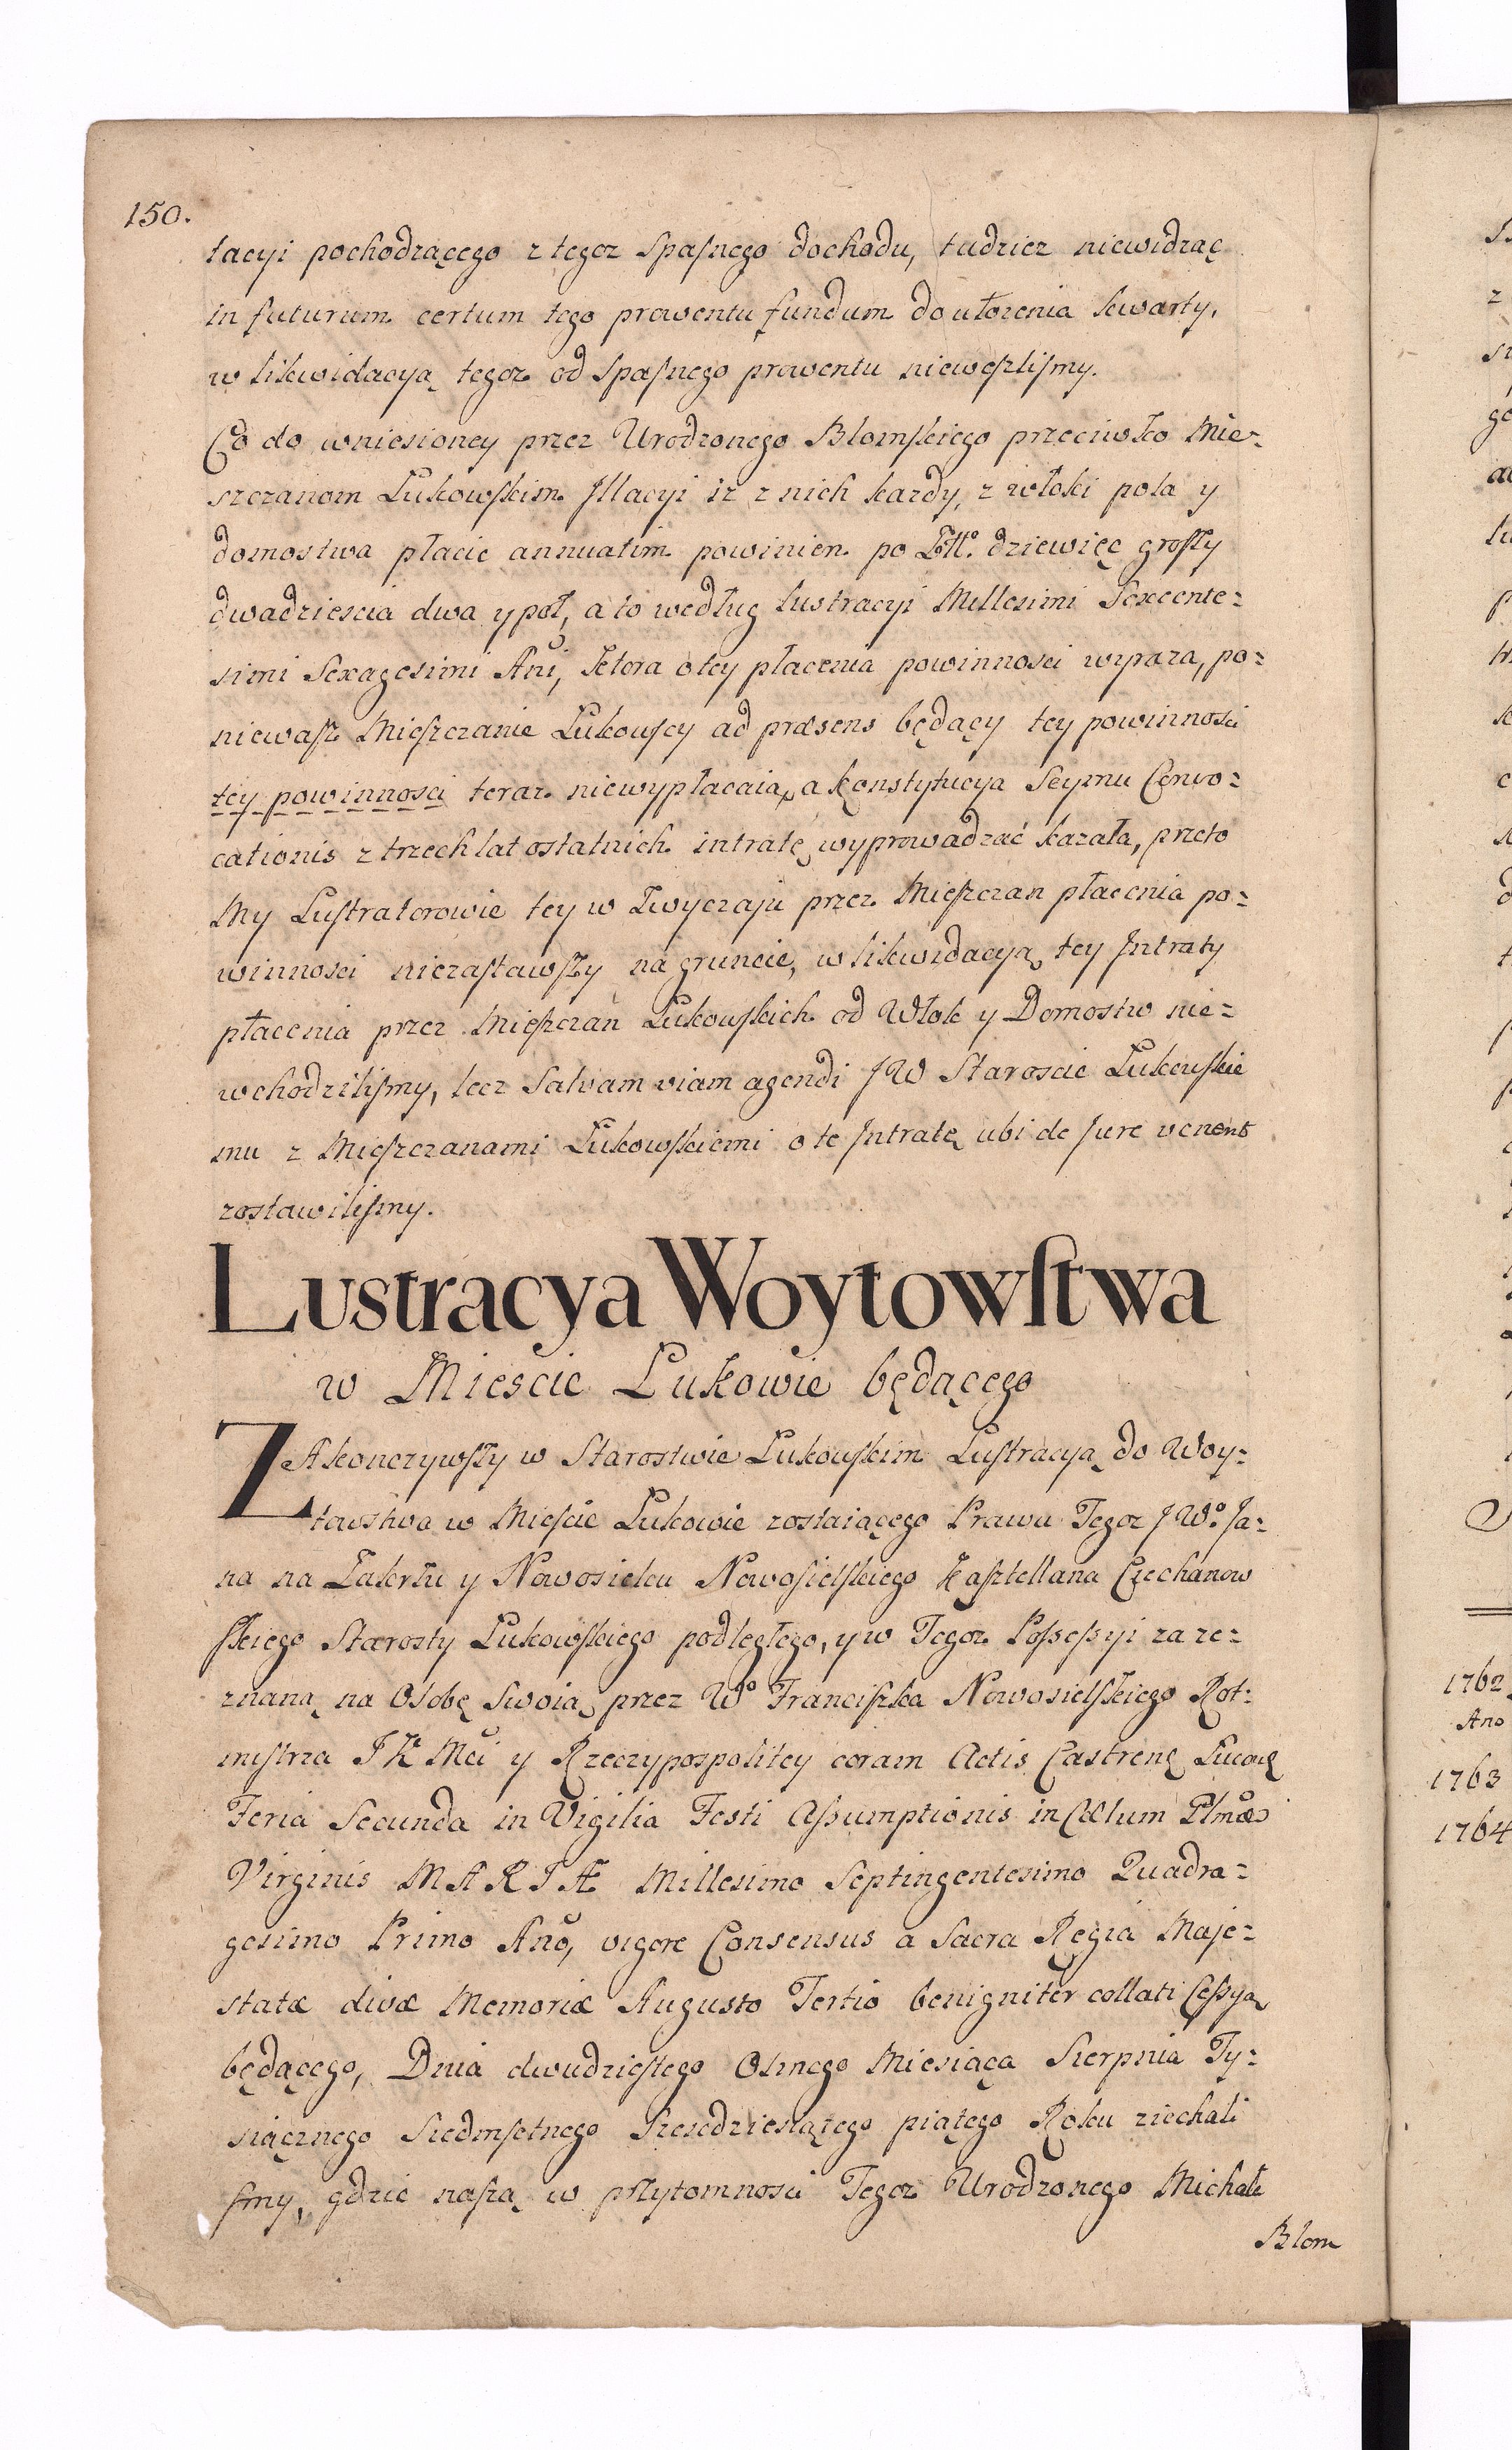 150.
tacyi pochodzącego z tegoż Spaſnego dochodu, tudziez niewidząc
in futurum certum tego prowentu fundum do ułozenia kwarty,
w likwidacyą tegoz od Spaſnego prowentu nieweſzliſmy.
Co do wniesioney przez Urodzonego Blomſkiego przeciwko Mie=
szczanom Łukowſkim Jllacyi iz z nich kazdy, z włoki pola y
domostwa płacic annuatim powinien po Złł. dziewięc groſzy
dwadziescia dwa y poł, a to według lustracyi Millesimi Sexcente=
simi Sexagesimi Añi, ktora o tey płacenia powinnosci wyraza, po=
niewaſz Mieſzczanie Łukowſcy ad præsens będący tey powinnosci
tey powinnosci teraz niewypłacaią, a Konstytucya Seymu Convo=
cationis z trzech lat ostatnich intratę wyprowadzać kazała, przeto
My Luſtratorowie tey w Zwyczaju przez Mieſzczan płacenia po=
winnosci niezaſtawſzy na gruncie, w likwidacyą tey Jntraty
płacenia przez Mieſzczan Łukowſkich od Włok y Domostw nie=
wchodziliſmy, lecz Salvam viam agendi JW Staroscie Łukowſkie
mu z Mieſzczanami Łukowſkiemi o te Jntratę ubi de Jure venent
zostawiliſmy.
Lustracya Woytowſtwa
w Miescie Łukowie będącego
ZAkonczywſzy w Starostwie Łukowſkim Luſtracyą do Woy=
towstwa w Mieſcie Łukowie zostaiącego Prawu Tegoz JWº. Ja=
na na Zakrżu y Nowosielcu Nowoſielſkiego Kaſztellana Ciechanow
ſkiego Starosty Łukowſkiego podległego, y w Tegoz Poſseſsyi za ze=
znaną na Osobę Swoią przez Wº Franciſzka Nowosielſkiego Rot=
miſtrza J K Mci y Rzeczypospolitey coram Actis Castrenę Lucovę
Feria Secunda in Vigilia Festi Aſsumptionis in Cœlum Blmæ
Virginis MARIÆ Millesimo Septingentesimo Quadra=
gesimo Primo Añō, vigore Consensus a Sacra Regia Maje=
statæ divæ Memoriæ Augusto Tertio benigniter collati Ceſsyą
będącego, Dnia dwudzieſtego Osmego Miesiąca Sierpnia Ty=
siącznego Siedmſetnego Szescdziesiątego piątego Roku ziechali
ſmy, gdzie naſzą w przytomnosci Tegoz Urodzonego Michała
Blom
1762
Ano
1763
1764